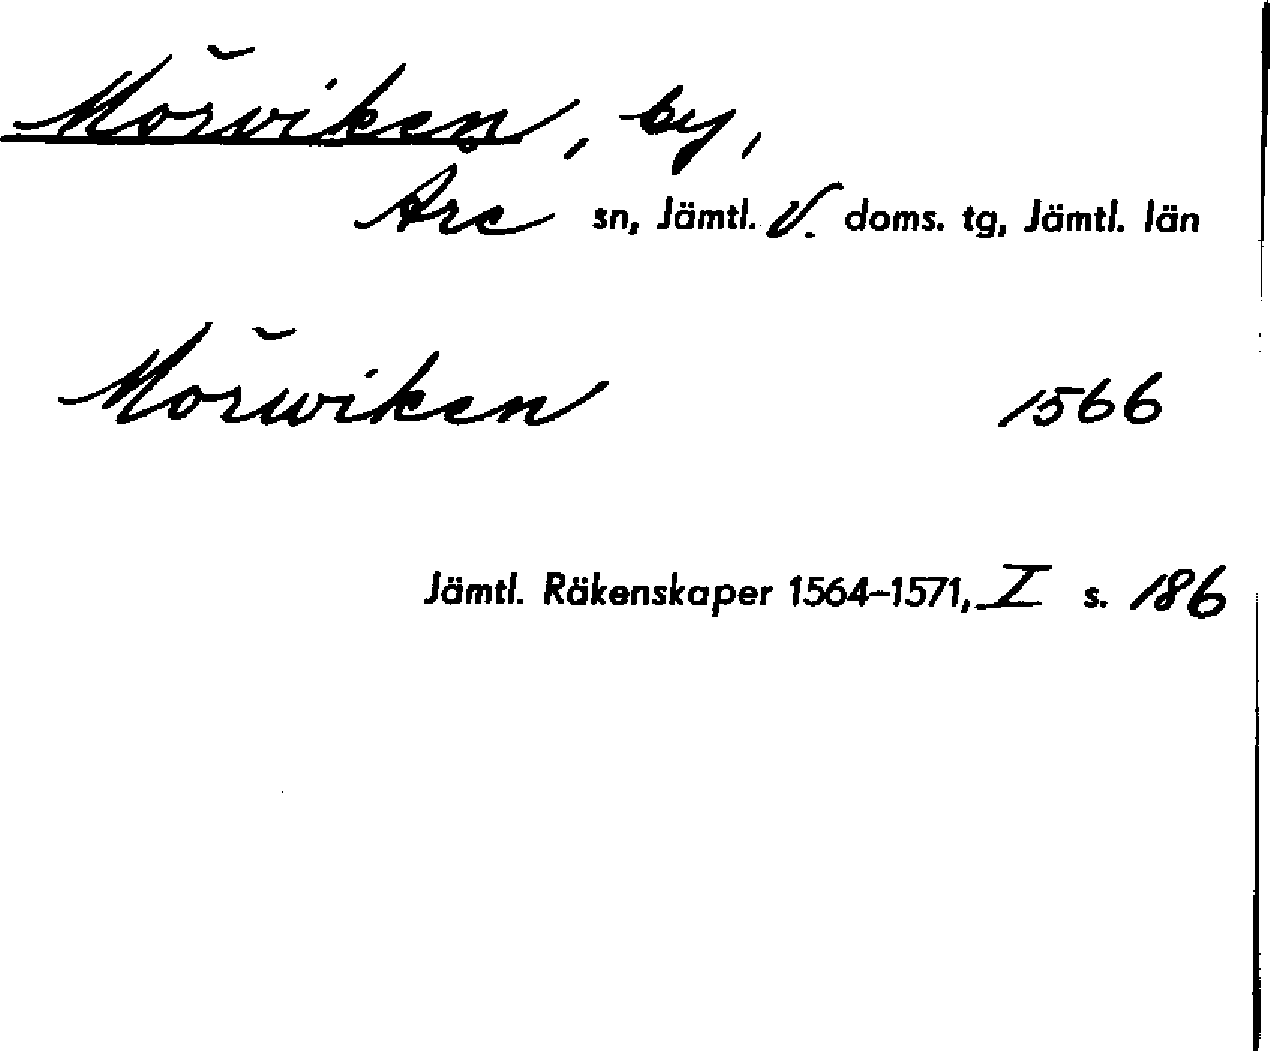 Mörviken, by,
Åre sn, Jämtl. V. doms. tg, Jämtl. län
Mörwiken 1566
Jämtl. Räkenskaper 1564–1571, I s. 186